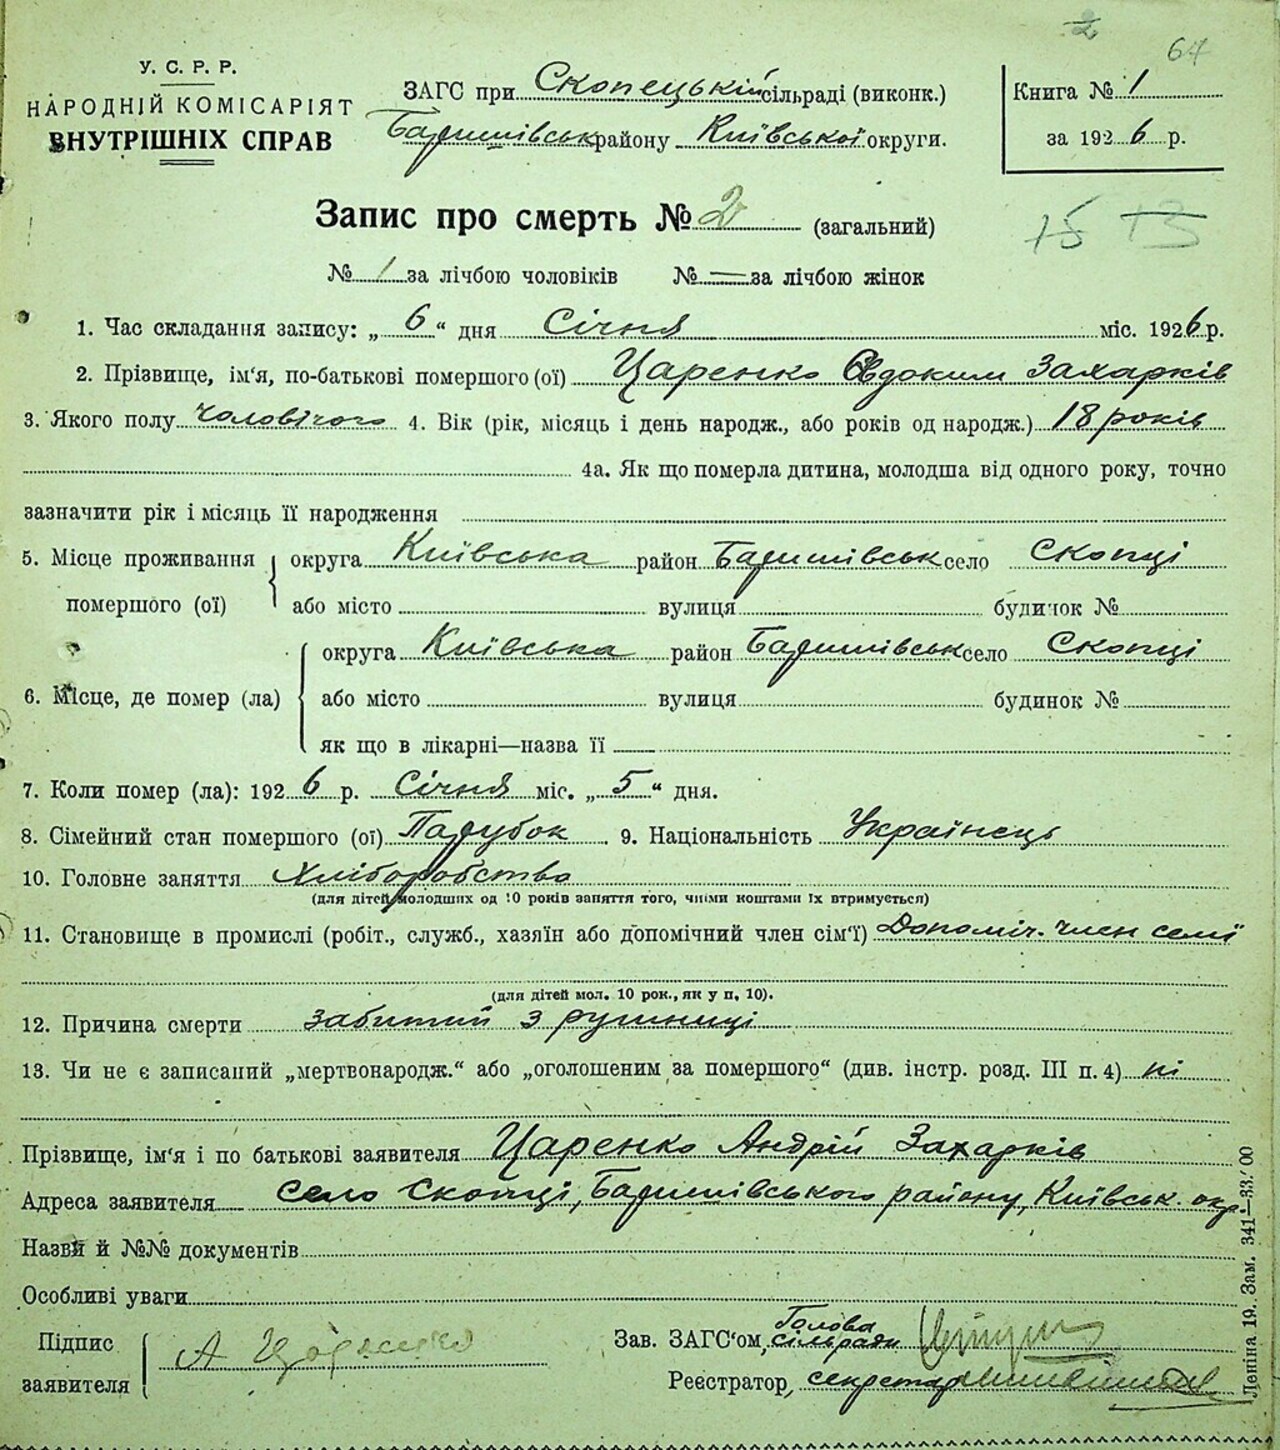 64
У. С. Р. Р.
НАРОДНІЙ КОМІСАРІЯТ
ВНУТРІШНІХ СПРАВ
ЗАГС при Скопецькій сільраді (виконк.)
Баришівськ району Київської округи.
Книга № 1
за 1926 р.
Запис про смерть № 2 (загальний)
75 13
№ 1 за лічбою чоловіків № — за лічбою жінок
1. Час складання запису: „ 6 “ дня Січня міс. 1926 р.
2. Прізвище, ім‘я, по-батькові помершого (ої) Царенко Овдоким Захарків
3. Якого полу чоловічого 4. Вік (рік, місяць і день народж., або років од народж.) 18 років
4а. Як що померла дитина, молодша від одного року, точно
зазначити рік і місяць її народження
5. Місце проживання помершого (ої) округа Київська район Баришівськ село Скопці
або місто вулиця будинок №
6. Місце, де помер (ла) округа Київська район Баришівськ село Скопці
або місто вулиця будинок №
як що в лікарні—назва її —
7. Коли помер (ла): 1926 р. Січня міс. „ 5 “ дня.
8. Сімейний стан помершого (ої) Парубок 9. Національність Українець
10. Головне заняття Хліборобство
(для дітей молодших од 10 років заняття того, чиїми коштами їх втримується)
11. Становище в промислі (робіт., служб., хазяїн або допомічний член сім‘ї) Допоміч. член семї
(для дітей мол. 10 рок., як у п. 10).
12. Причина смерти забитий з рушниці
13. Чи не є записаний „мертвонародж.“ або „оголошеним за помершого“ (див. інстр. розд. III п. 4) ні
Прізвище, ім‘я і по батькові заявителя Царенко Андрій Захарків
Адреса заявителя село Скопці, Баришівського району, Київськ. окр.
Назви й №№ документів
Особливі уваги
Підпис заявителя А Царенко
Зав. ЗАГС‘ом, Голова сільради
Реєстратор, секретар
Леніна 19. Зам. 341—33.